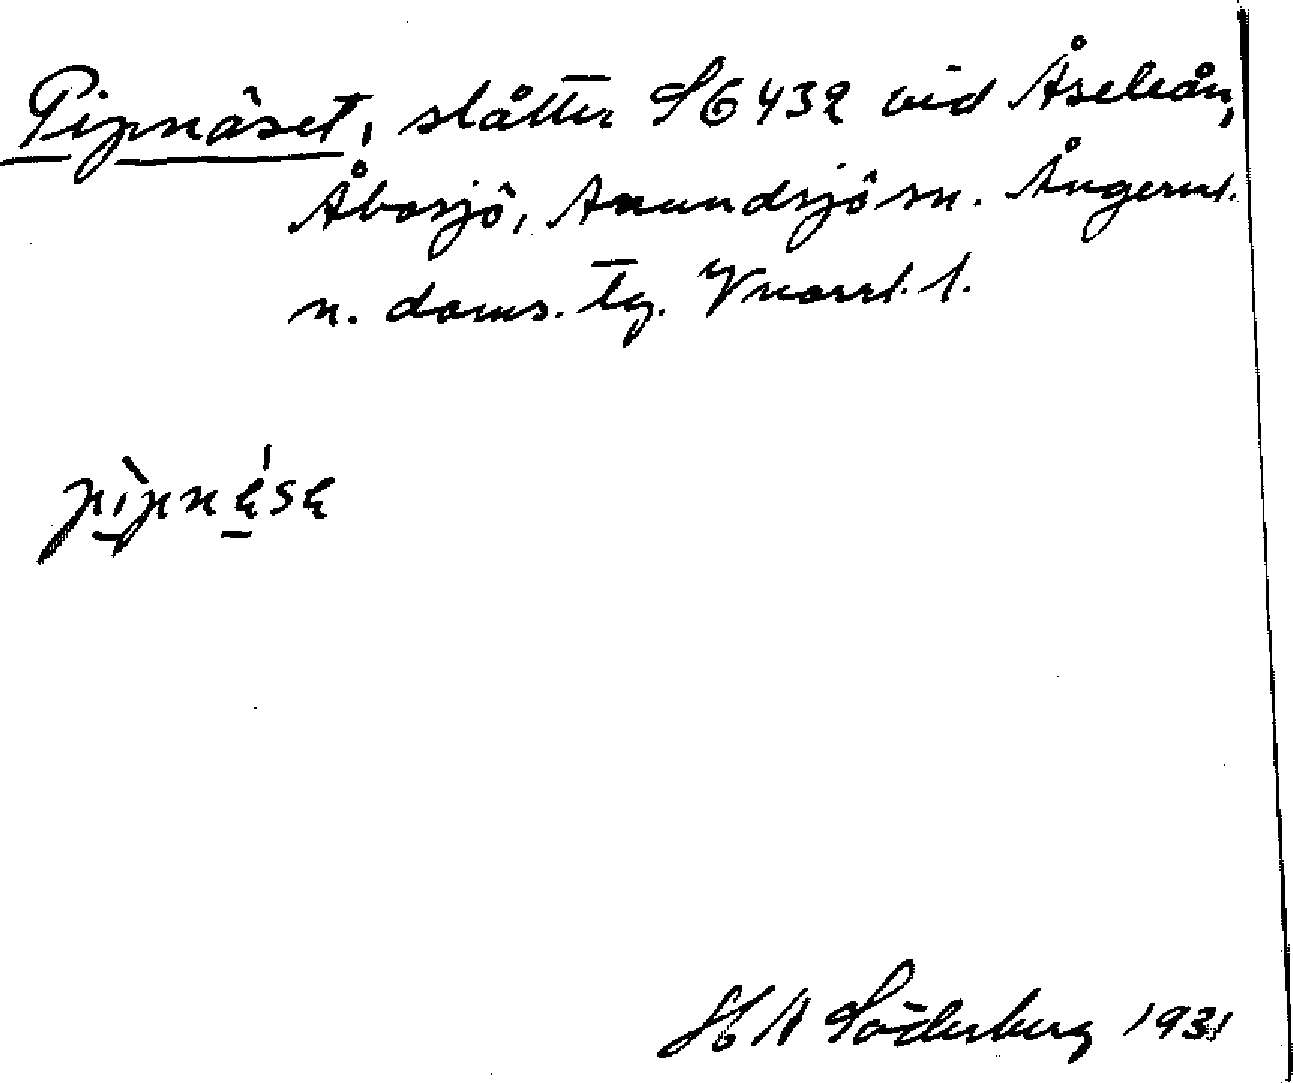 Pipnäset, slåtter S6432 vid Åseleån,
Åbosjö, Anundsjö sn. Ångerml.
n. doms. tg. Vnorrl. l.
pìpnę́sę
H A Söderberg 1931